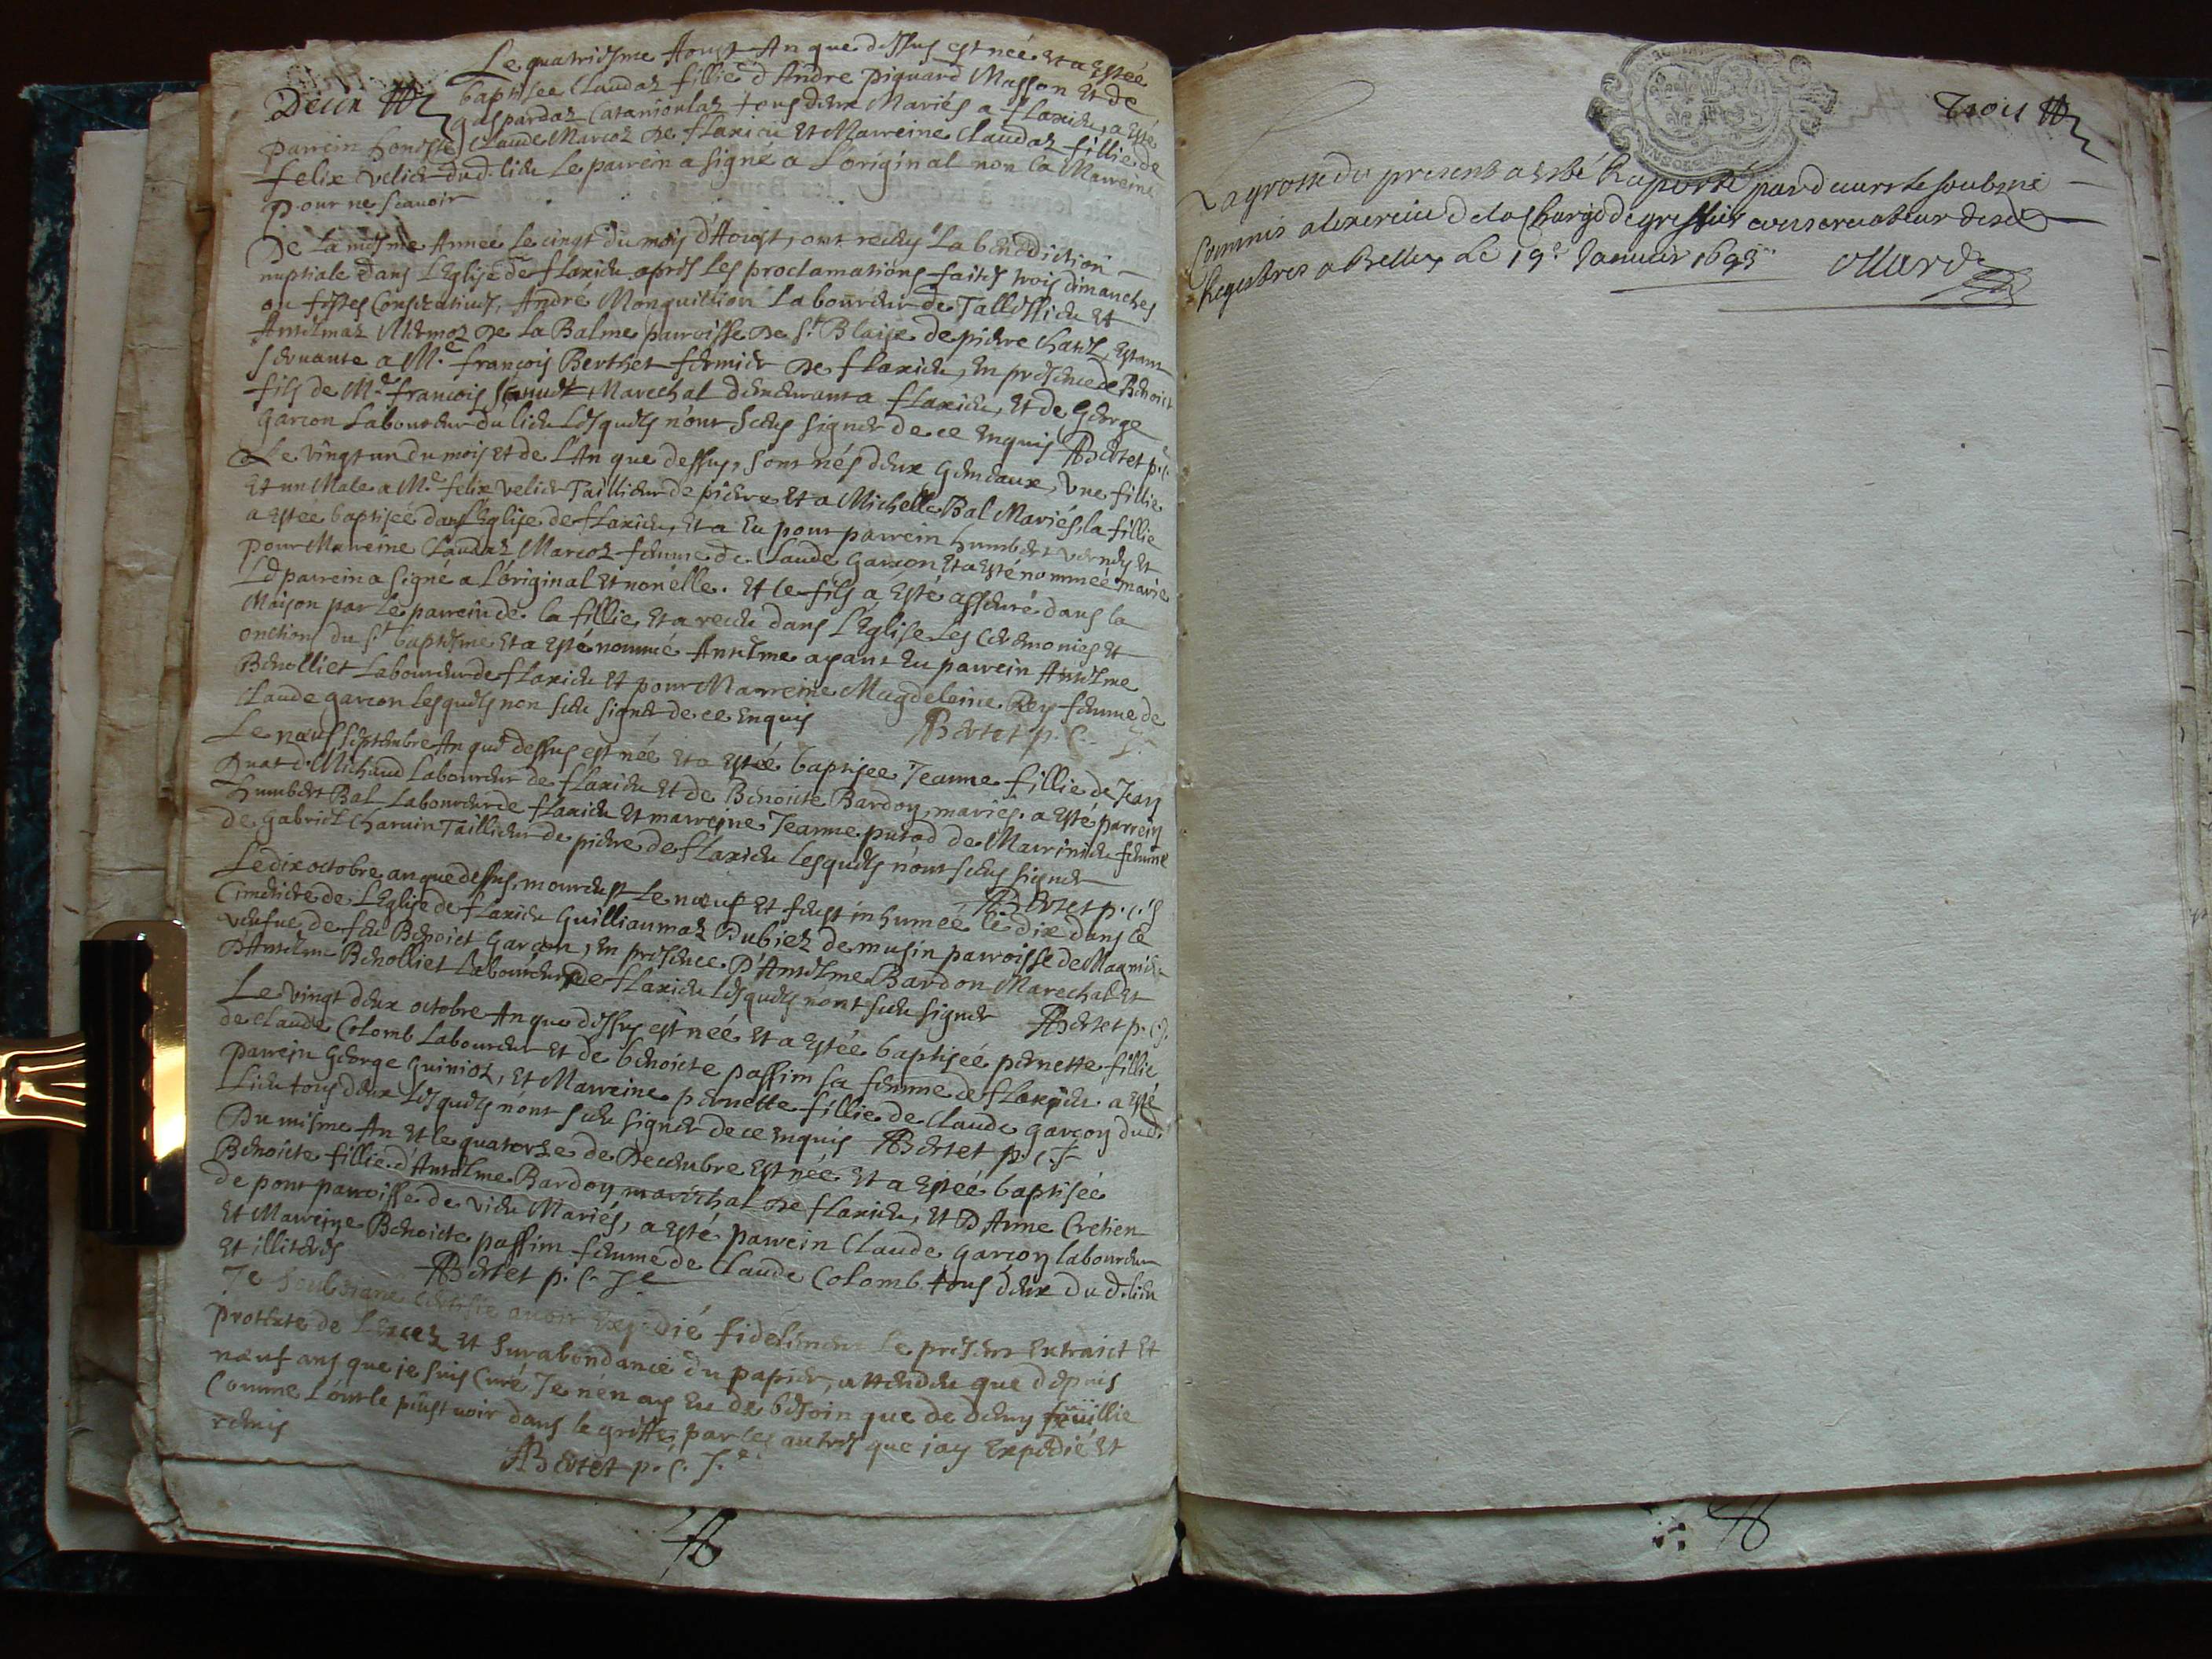 Le quatriesme Aoust An que dessus est neé et a Esteé
Deux baptisee Claudaz fillie d'Andre piquard Masson Et de
gaspardaz Catanioulaz tous deux Mariés a flaxieu, a Esté
parrein honeste Claude Marcoz De flaxieu Et Marreine Claudaz fillie de
felix velier dud. lieu Le parrein a signé a L'original non la Marreine
pour ne scavoir
De la mesme Anneé Le vingt du mois d'Aoust, ont receus La benediction
nuptiale dans L'Eglise de flaxieu apres Les proclamations faites trois dimanches
ou festes Consecutives, André Monquillion Laboureur de Tallissieu Et
Antelmaz De La Balme parroisse De St Blaise de pierre chatel, Estant
servante a Mr. françois Berthet fermier De flaxieu, En presence de Benoict
fils de Mr. francois Marechal demeurant a flaxieu, Et de George
garcon Laboureur du lieu Lesquels n'ont sceus signer de ce Enquis ABertet p. c.
Le vingt un du mois Et de L'An que dessus, sont nés deux gemeaux, Une fillie
Et un Male a Mr. felix velier Taillieur de pierre Et a Michelle Bal Mariés, la fillie
a Estee baptiseé dans L'Eglise de flaxieu, Et a Eu pour parrein humbert verney Et
pour Marreine Claudaz Marcoz femme de Claude garcon Et a Esté nommeé marie
Ld parrein a signé a L'original Et non elle. Et le fils a Esté asseuré dans la
Maison par Le parrein de la fillie Et a receu dans L'Eglise Les Ceremonies Et
onctions du St baptesme Et a Esté nommé Antelme ayant Eu parrein Antelme
Benolliet Laboureur de flaxieu Et pour Marreine Magdeleine Rey femme de
Claude garcon Lesquels non sceu signer de ce Enquis ABertet p. c.
Le neuf septembre An que dessus est neé Et a Esteé baptisee Jeanne fillie de Jean
Michaud Laboureur de flaxieu Et de Benoicte Bardon, mariés. a Esté parrein
humbert Bal Laboureur de flaxieu Et marreyne Jeanne putod de Marinieu femme
de gabriel charvin Taillieur de pierre de flaxieu Lesquels n'ont sceus signer
ABertet p. c.
Le dix octobre an que dessus, moureust Le neuf Et feust inhumeé le dix dans le
Cimetiere de L'Eglise de flaxieu Guilliaumaz Dubiez de musin parroisse de Magnieu
veufue de feu Benoict Garcon, En presence D'Antelme Bardon Marechal Et
D'Antelme Benolliet Laboureur de flaxieu Lesquels n'ont sceu signer ABertet p. c.
Le vingt deux octobre An que dessus est neé Et a Esteé baptiseé pernette fillie
de Claude Colomb Laboureur Et de benoicte passim sa femme de flaxieu. a Esté
parrein George guinioz, Et Marreine pernette fillie de Claude garcon dud.
lieu tous deux Lesquels n'ont sceu signer de ce Enquis ABertet p. c.
Du misme An Et le quatorze de Decembre Est neé Et a Esteé baptiseé
Benoicte fillie d'Antelme Bardon marechal De flaxieu, Et D'Anne Cretien
de pont parroisse de vieu Mariés, a Esté parrein Claude garcon laboureur
Et Marreine Benoicte passim femme de Claude Colomb tous deux dud. lieu
Et illiterés ABertet p. c.
Je soubsigné certifie avoir expedié fidelement le present Extraict Et
proteste de L'excez Et surabondance du papier, attendeu que depuis
neuf ans que je suis Curé Je n'en ay Eu de besoin que de demy feuillie
Comme L'on le peust voir dans le greffe par les autres que jay Expedié Et
remis ABertet p. c.
Trois
La grosse du present a esté Raporté pardevers le soubsiné
Commis a lexercice de la charge de greffier conservateur desd
Registres a Belley Le 19e Janvier 1693 Ollard